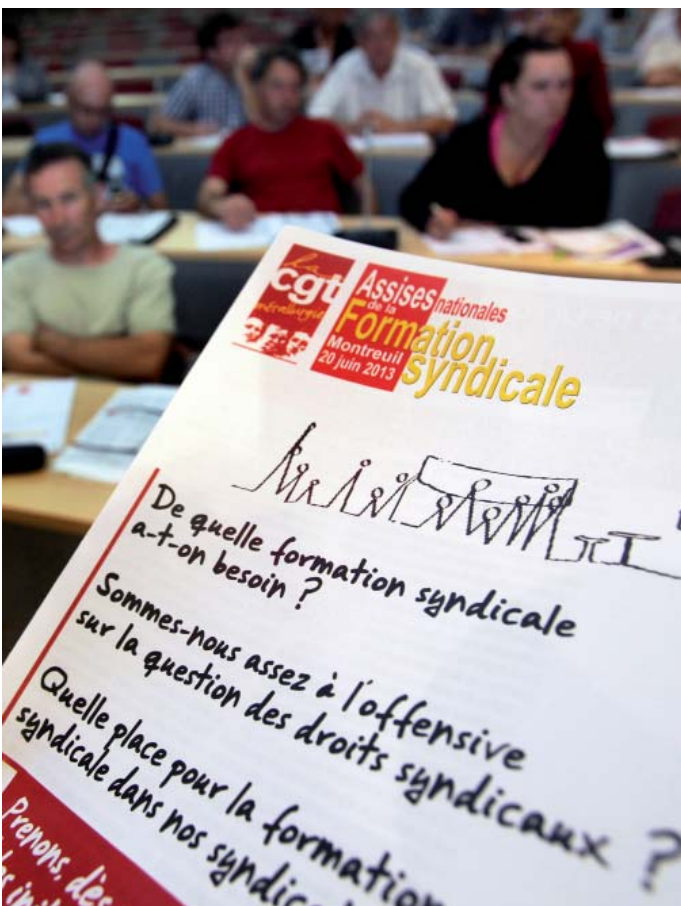 la
cgt
métallurgie
Assises nationales
de la
Formation
syndicale
Montreuil
20 juin 2013
De quelle formation syndicale
a-t-on besoin ?
Sommes-nous assez à l'offensive
sur la question des droits syndicaux ?
Quelle place pour la formation
syndicale dans nos
Prenons, dès